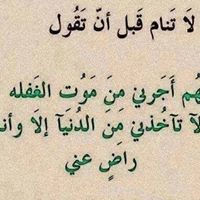 لَا تَنام قَبل أنّ تَقُول
هُم أَجَرني مِنَ مَوُت الغَفله
لآ تآخُذني مِنَ الدُنيآ إلَا وأنـ
راضَ عني